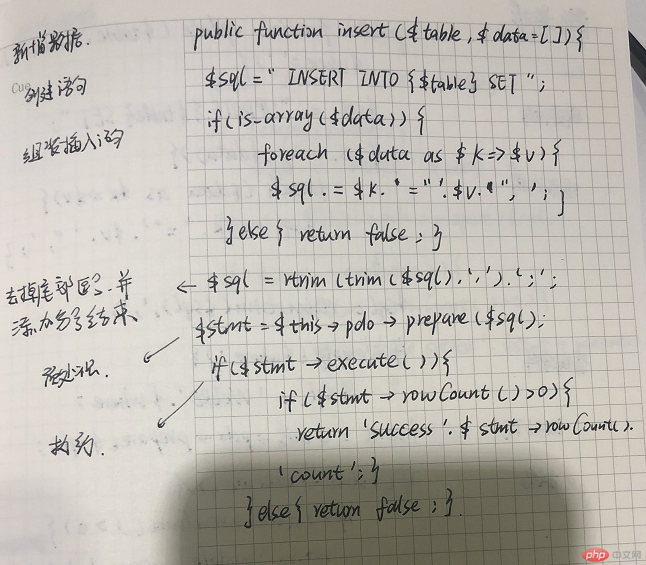 新增数据.
public function insert ($table, $data=[]){
创建语句
$sql=" INSERT INTO {$table} SET ";
if(is_array($data)){
组装插入语句
foreach ($data as $k=>$v){
$sql .= $k.'="'.$v.'", '; }
}else{ return false ; }
去掉尾部逗号.并
← $sql = rtrim(trim($sql),',').';';
添加分号结束
$stmt = $this→pdo→prepare($sql);
预处理.
if($stmt→execute()){
if($stmt→rowCount()>0){
执行.
return 'success'.$stmt→rowCount().
'count';}
}else{ return false ; }.
php 中文网